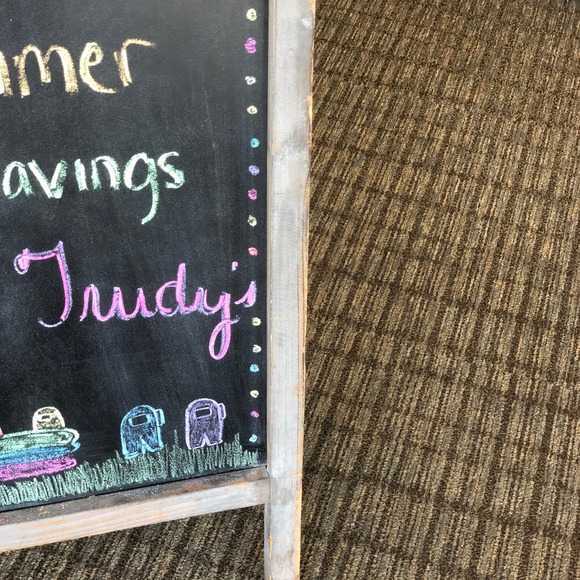 mmer
avings
Trudy's